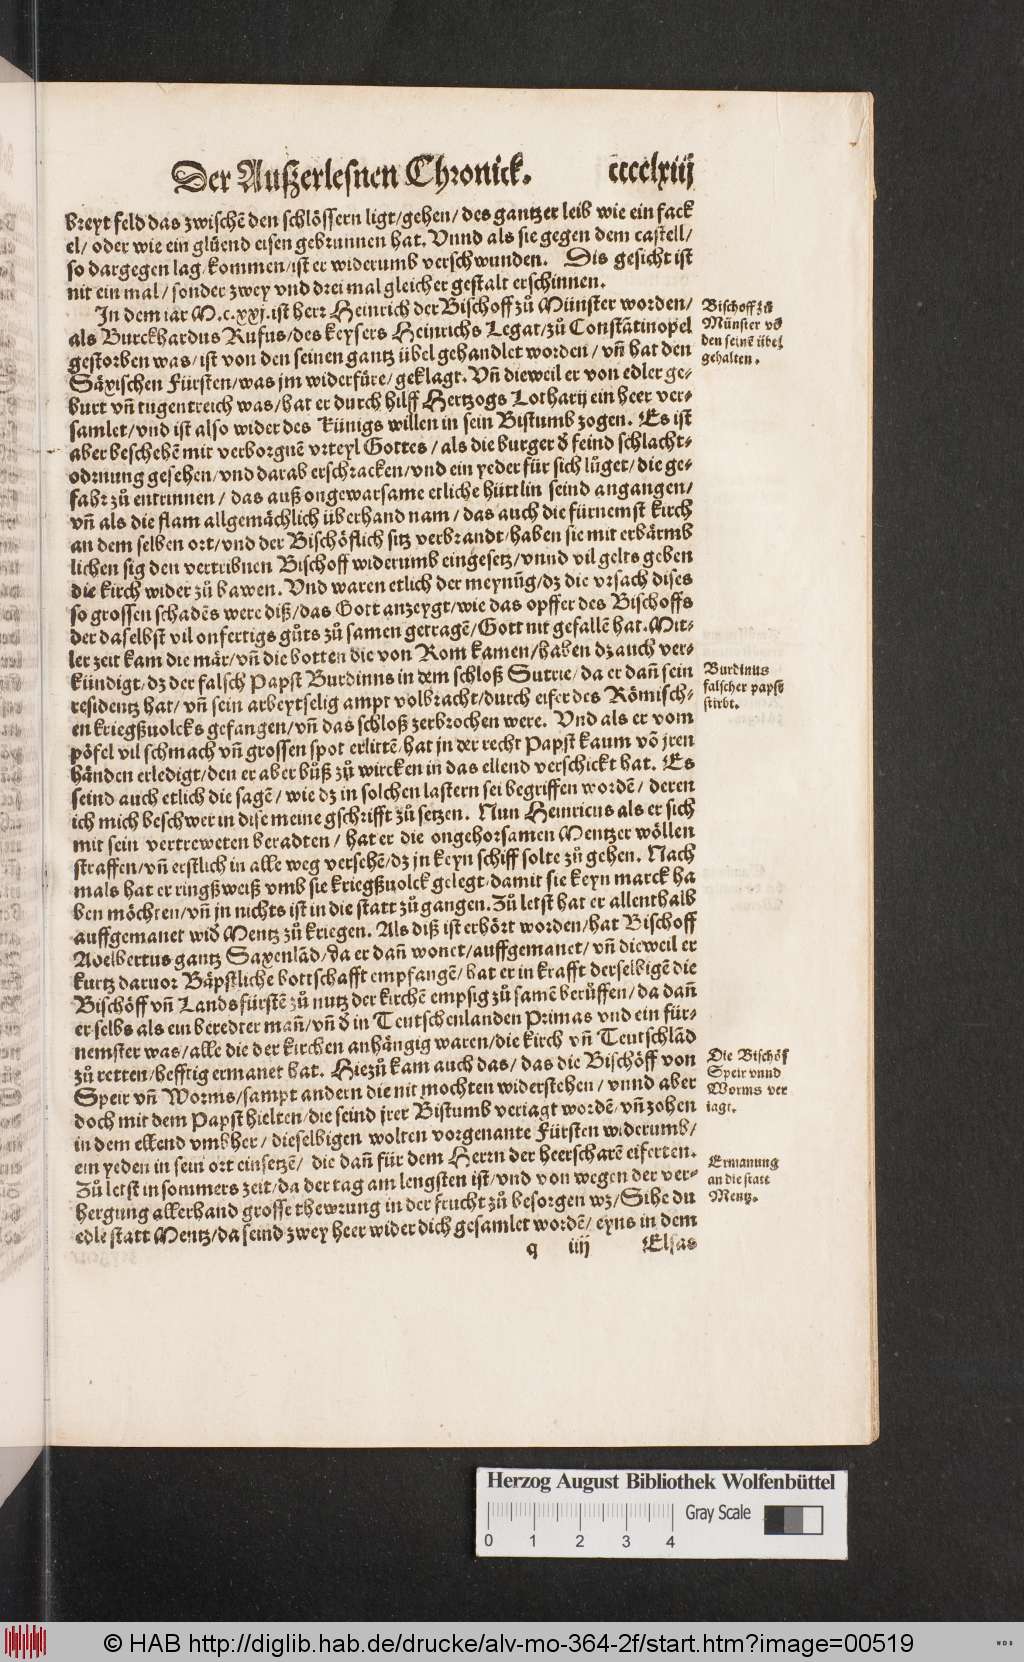 Der Außerlesnen Chronick. cccclxiij
breyt feld das zwischē den schlössern ligt/gehen/ des gantzer leib wie ein fack
el/ oder wie ein glüend eisen gebrunnen hat. Vnnd als sie gegen dem castell/
so dargegen lag/kommen/ist er widerumb verschwunden. Dis gesicht ist
nit ein mal/ sonder zwey vnd drei mal gleicher gestalt erschinnen.
In dem iar M.c.xxj. ist herr Heinrich der Bischoff zů Münster worden/
als Burckhardus Rufus/des keysers Heinrichs Legat/zů Constātinopel
gestorben was/ist von den seinen gantz übel gehandlet worden/ vñ hat den
Säxischen Fürsten/was jm widerfüre/geklagt. Vñ dieweil er von edler ge-
burt vñ tugentreich was/hat er durch hilff Hertzogs Lotharij ein heer ver-
samlet/vnd ist also wider des Künigs willen in sein Bistumb zogen. Es ist
aber beschehē mit verborgnē vrteyl Gottes/ als die burger d̄ feind schlacht-
ordnung gesehen/vnd darab erschracken/vnd ein yeder für sich lůget/die ge-
fahr zů entrinnen/ das auß ongewarsame etliche hüttlin seind angangen/
vñ als die flam allgemächlich überhand nam/ das auch die fürnemst kirch
an dem selben ort/vnd der Bischöflich sitz verbrandt/haben sie mit erbärmb
lichen sig den vertribnen Bischoff widerumb eingesetz/vnnd vil gelts geben
die kirch wider zů bawen. Vnd waren etlich der meynũg/dz die vrsach dises
so grossen schadēs were diß/das Gott anzeygt/wie das opffer des Bischoffs
der daselbst vil onfertigs gůts zů samen getragē/Gott nit gefallē hat. Mit-
ler zeit kam die mär/vñ die botten die von Rom kamen/haben dz auch ver-
kündigt/dz der falsch Papst Burdinus in dem schloß Sutrie/da er dañ sein
residentz hat/ vñ sein arbeytselig ampt volbracht/durch eifer des Römisch-
en kriegßuolcks gefangen/vñ das schloß zerbrochen were. Vnd als er vom
pöfel vil schmach vñ grossen spot erlittē/hat jn der recht Papst kaum vō jren
händen erledigt/den er aber bůß zů wircken in das ellend verschickt hat. Es
seind auch etlich die sagē/ wie dz in solchen lastern sei begriffen wordē/ deren
ich mich beschwer in dise meine gschrifft zů setzen. Nun Heinricus als er sich
mit sein vertreweten beradten/ hat er die ongehorsamen Mentzer wöllen
straffen/vñ erstlich in alle weg versehē/dz jn keyn schiff solte zů gehen. Nach
mals hat er ringßweiß vmb sie kriegßuolck gelegt/damit sie keyn marck ha
ben möchten/vñ jn nichts ist in die statt zů gangen. Zů letst hat er allenthalb
auffgemanet wid̄ Mentz zů kriegen. Als diß ist erhört worden/hat Bischoff
Adelbertus gantz Saxenlād/da er dañ wonet/auffgemanet/ vñ dieweil er
kurtz daruor Bäpstliche bottschafft empfangē/hat er in krafft derselbigē die
Bischöff vñ Landsfürstē zů nutz der kirchē empsig zů samē berůffen/da dañ
er selbs als ein beredter mañ/vñ d̄ in Teutschenlanden Primas vnd ein für-
nemster was/alle die der kirchen anhängig waren/die kirch vñ Teutschlād
zů retten/hefftig ermanet hat. Hiezů kam auch das/das die Bischöff von
Speir vñ Worms/sampt andern die nit mochten widerstehen/ vnnd aber
doch mit dem Papst hielten/die seind jrer Bistumb veriagt wordē/vñ zohen
in dem ellend vmbher/ dieselbigen wolten vorgenante Fürsten widerumb/
ein yeden in sein ort einsetzē/ die dañ für dem Herrn der heerscharē eiferten.
Zů letst in sommers zeit/da der tag am lengsten ist/vnd von wegen der ver-
hergung allerhand grosse thewrung in der frucht zů besorgen wz/Sihe du
edle statt Mentz/da seind zwey heer wider dich gesamlet wordē/ eyns in dem
q iiij Elsas
Bischoff zů
Münster vō
den seinē übel
gehalten.
Burdinus
falscher papst
stirbt.
Die Bischöf
Speir vnnd
Worms ver
iagt.
Ermanung
an die statt
Mentz.
Herzog August Bibliothek Wolfenbüttel
Gray Scale
0 1 2 3 4
© HAB http://diglib.hab.de/drucke/alv-mo-364-2f/start.htm?image=00519